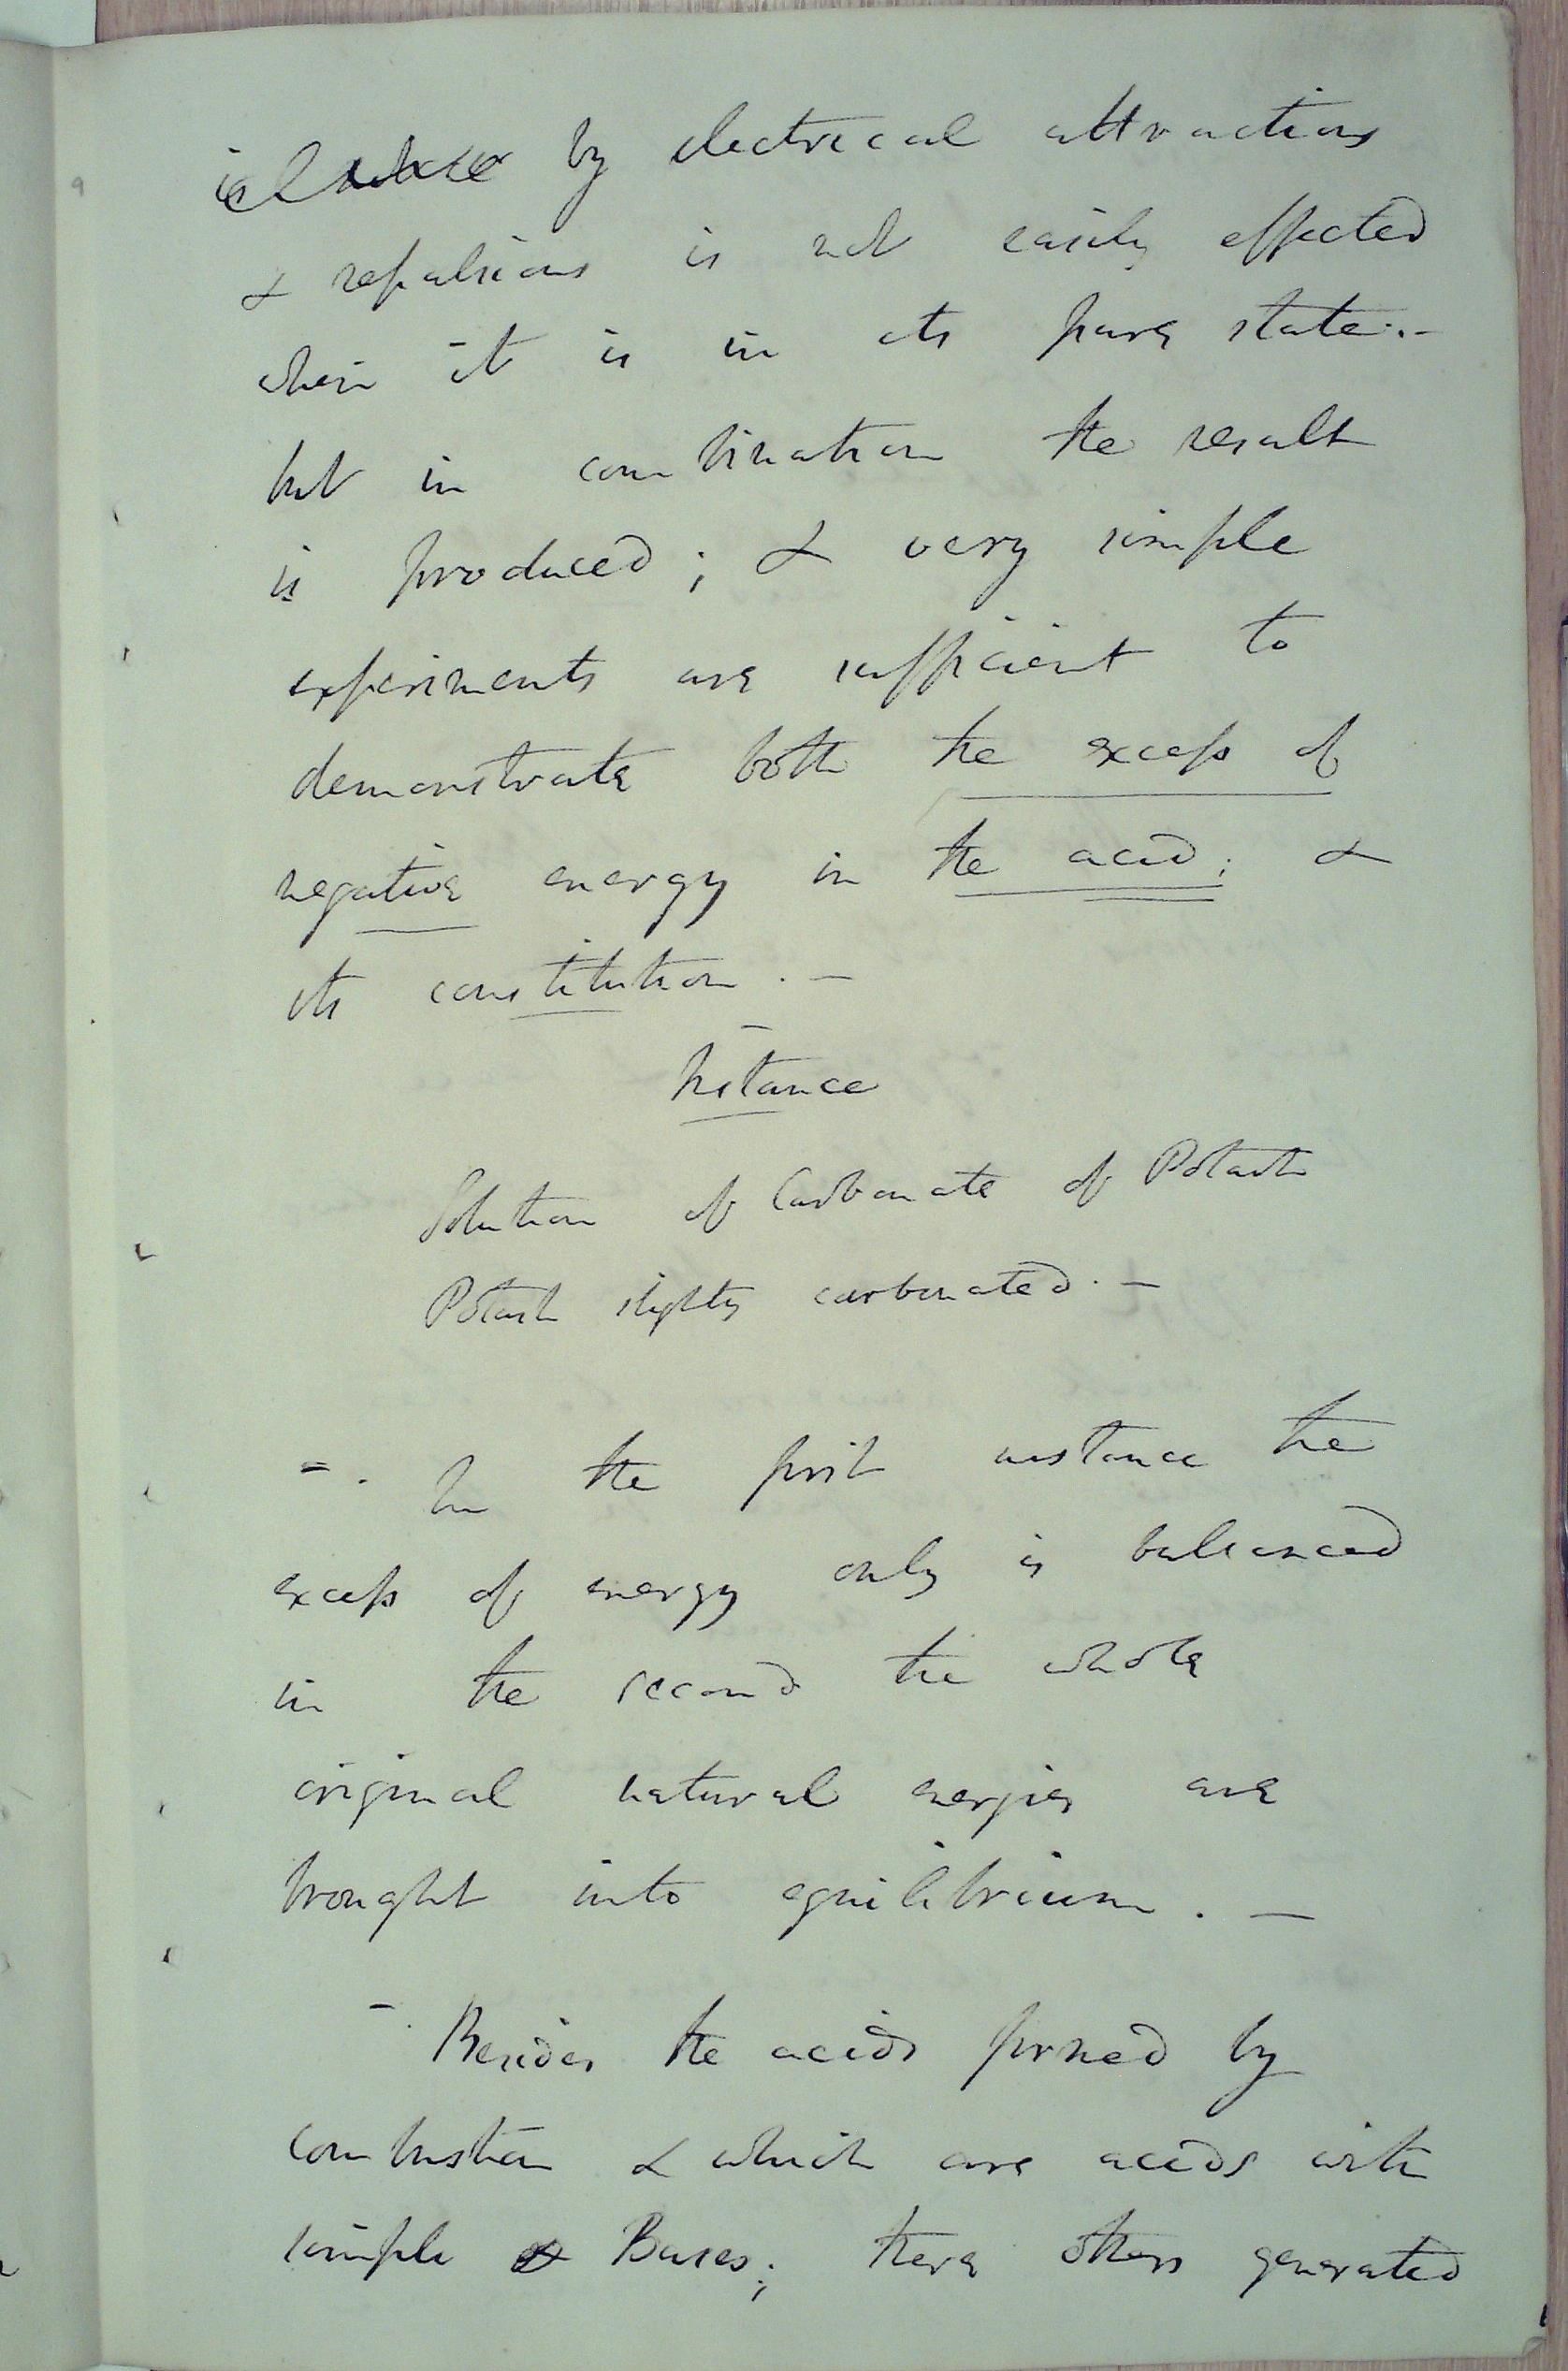 by electrical attractions
& repulsions is not easily effected
when it is in its pure state.-
but in combination the result
is produced; & very simple
experiments are sufficient to
demonstrate both the excess of
negative energy in the acid; &
its constitution. -
Instance
Solution of Carbonate of Potash
Potash slightly carbonated. -
=. In the first instance the
excess of energy only is balanced
in the second the whole
original natural energies are
brought into equilibrium. -
-. Besides the acids formed by
combustion & which are acids with
simple Bases; there others generated